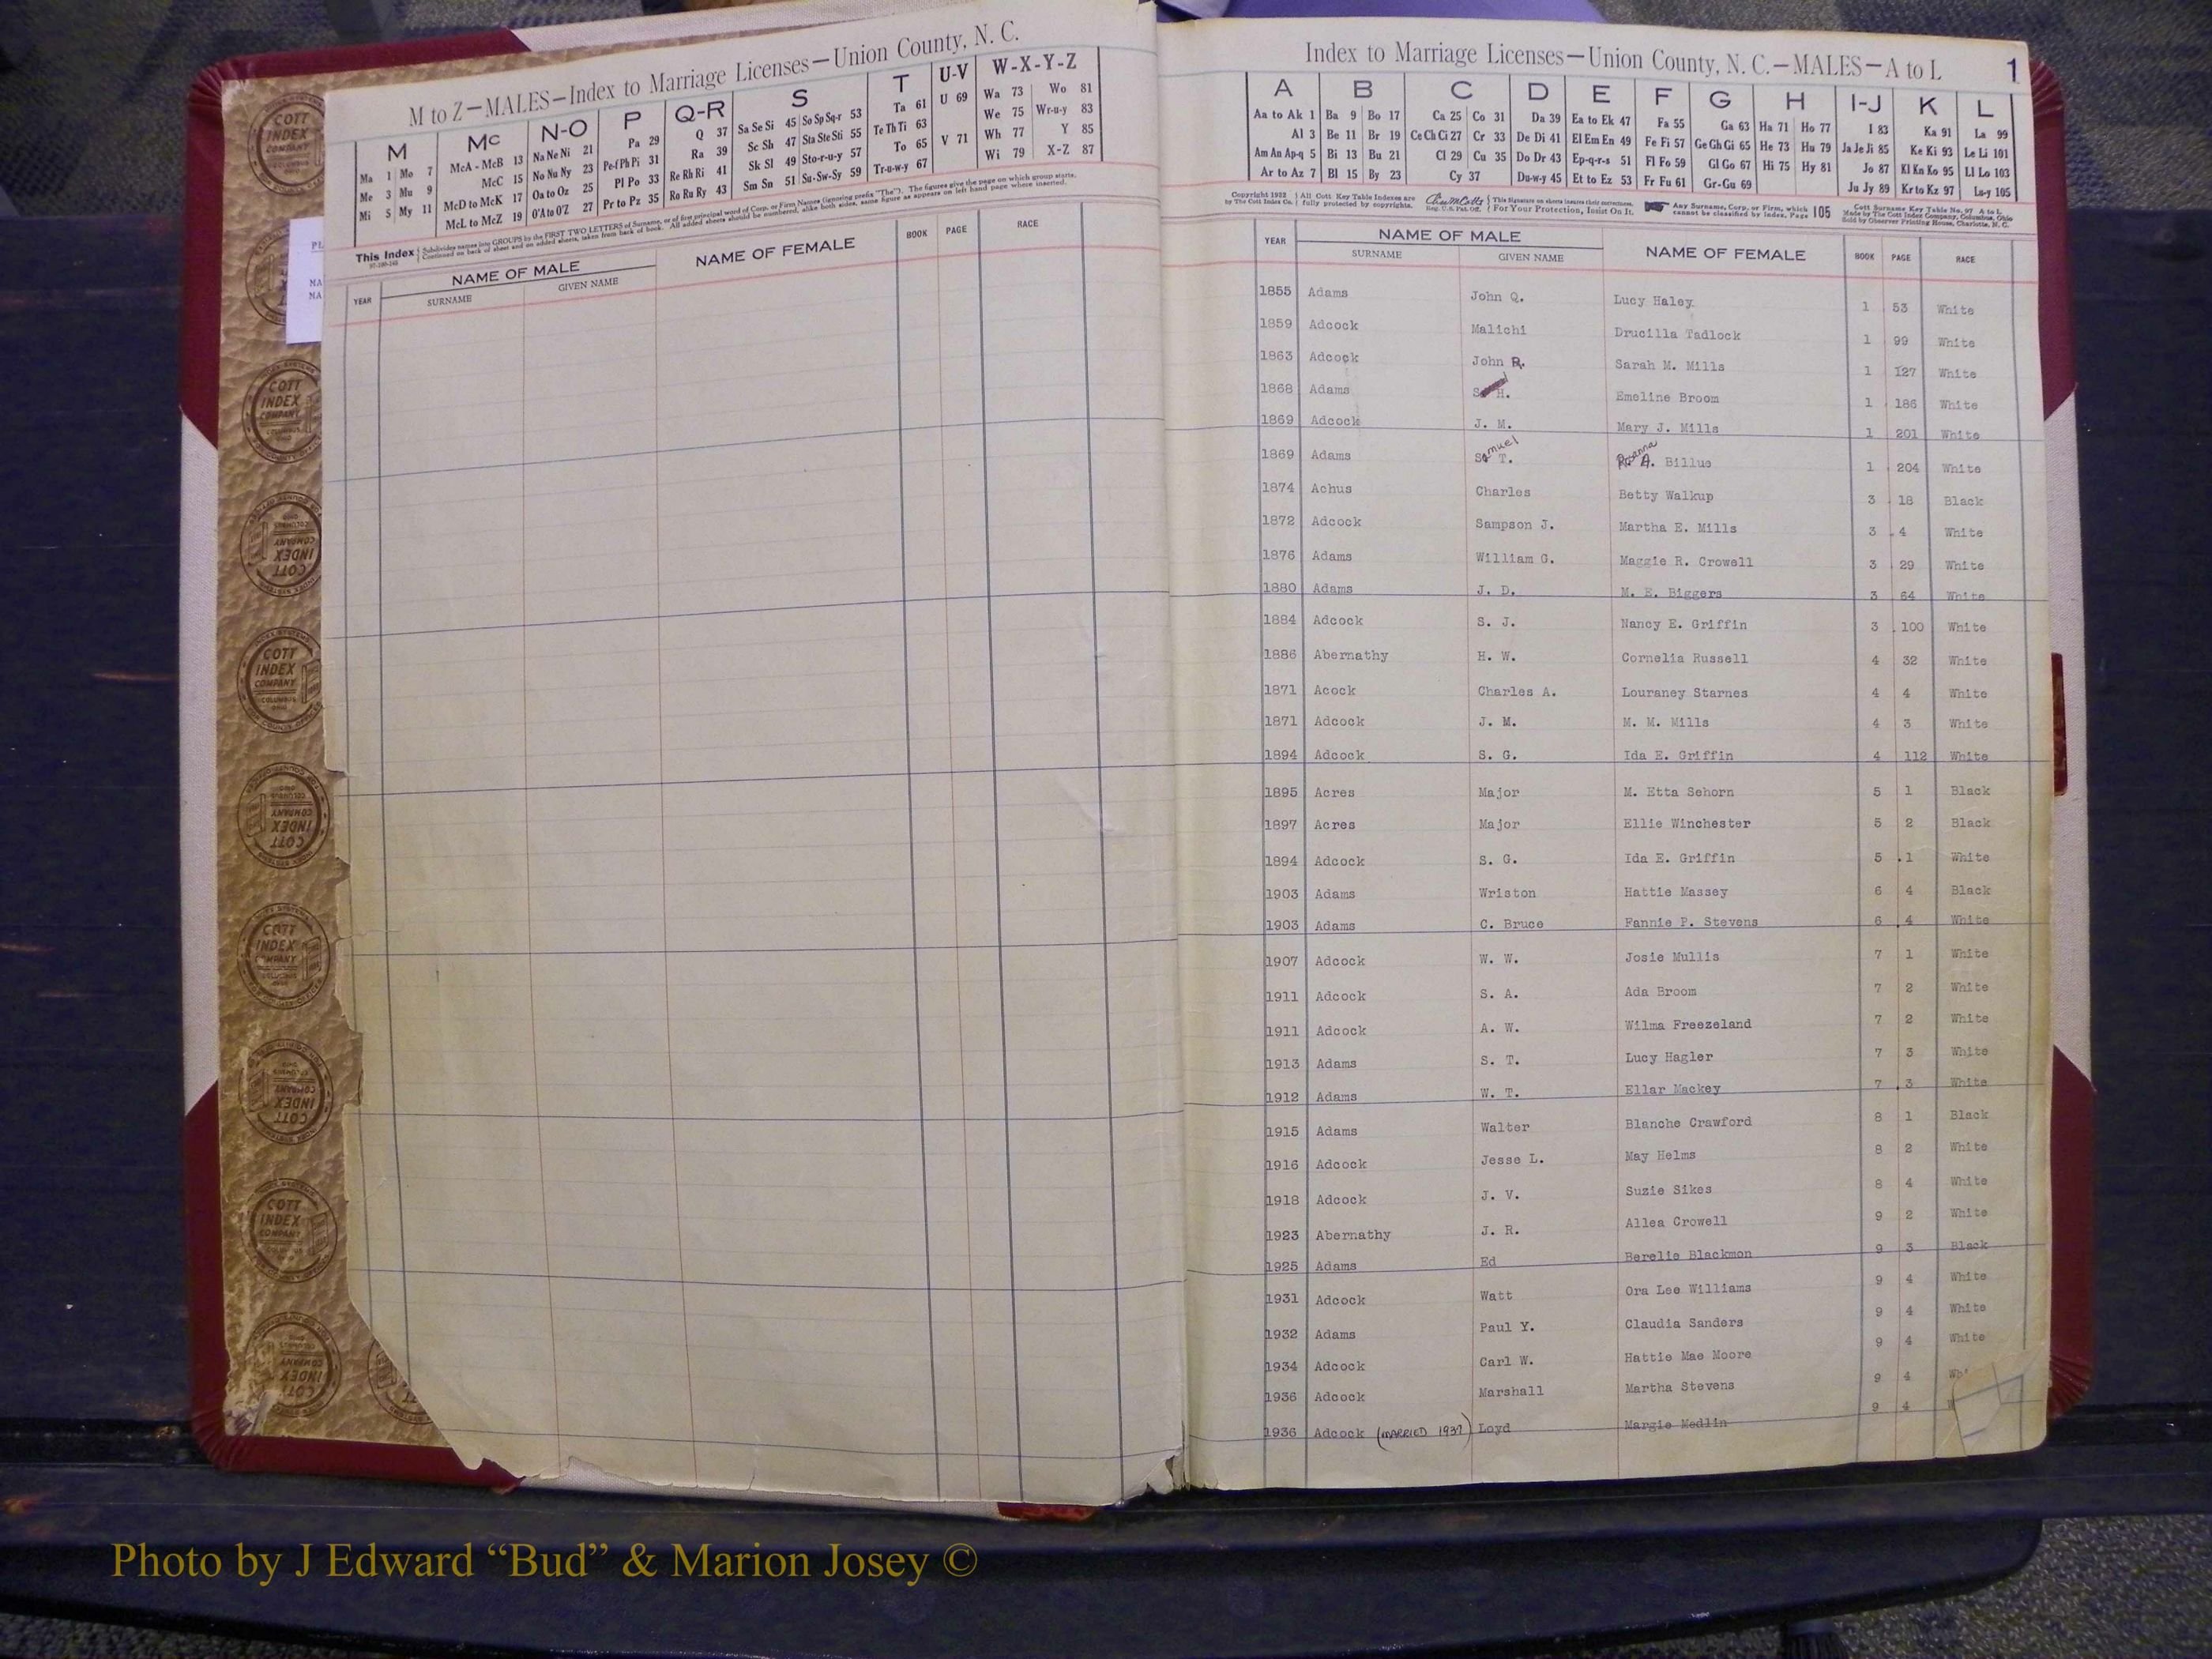 M to Z—MALES—Index to Marriage Licenses—Union County, N. C.
M Mc N-O P Q-R S T U-V W-X-Y-Z
Ma 1 Mo 7 McA - McB 13 Na Ne Ni 21 Pa 29 Q 37 Sa Se Si 45 So Sp Sq-r 53 Ta 61 U 69 Wa 73 Wo 81
Me 3 Mu 9 McC 15 No Nu Ny 23 Pe-f Ph Pi 31 Ra 39 Sc Sh 47 Sta Ste Sti 55 Te Th Ti 63 We 75 Wr-u-y 83
Mi 5 My 11 McD to McK 17 Oa to Oz 25 Pl Po 33 Re Rh Ri 41 Sk Sl 49 Sto-r-u-y 57 To 65 V 71 Wh 77 Y 85
McL to McZ 19 O'A to O'Z 27 Pr to Pz 35 Ro Ru Ry 43 Sm Sn 51 Su-Sw-Sy 59 Tr-u-w-y 67 Wi 79 X-Z 87
This Index Subdivides names into GROUPS by the FIRST TWO LETTERS of Surname, or of first principal word of Corp. or Firm Names (ignoring prefix "The"). The figures give the page on which group starts.
Continued on back of sheet and on added sheets, taken from back of book. All added sheets should be numbered, alike both sides, same figure as appears on left hand page where inserted.
YEAR NAME OF MALE NAME OF FEMALE BOOK PAGE RACE
SURNAME GIVEN NAME
Index to Marriage Licenses—Union County, N. C.—MALES—A to L 1
A B C D E F G H I-J K L
Aa to Ak 1 Ba 9 Bo 17 Ca 25 Co 31 Da 39 Ea to Ek 47 Fa 55 Ga 63 Ha 71 Ho 77 I 83 Ka 91 La 99
Al 3 Be 11 Br 19 Ce Ch Ci 27 Cr 33 De Di 41 El Em En 49 Fe Fi 57 Ge Gh Gi 65 He 73 Hu 79 Ja Je Ji 85 Ke Ki 93 Le Li 101
Am An Ap-q 5 Bi 13 Bu 21 Cl 29 Cu 35 Do Dr 43 Ep-q-r-s 51 Fl Fo 59 Gl Go 67 Hi 75 Hy 81 Jo 87 Kl Kn Ko 95 Ll Lo 103
Ar to Az 7 Bl 15 By 23 Cy 37 Du-w-y 45 Et to Ez 53 Fr Fu 61 Gr-Gu 69 Ju Jy 89 Kr to Kz 97 Lu-y 105
Copyright 1932 All Cott Key Table Indexes are This Signature on sheets insures their correctness. Any Surname, Corp. or Firm, which 105 Cott Surname Key Table No. 97 A to L
by The Cott Index Co. fully protected by copyrights. Reg. U.S. Pat. Off. For Your Protection, Insist On It. cannot be classified by Index, Page Made by The Cott Index Company, Columbus, Ohio
Sold by Observer Printing House, Charlotte, N. C.
YEAR NAME OF MALE NAME OF FEMALE BOOK PAGE RACE
SURNAME GIVEN NAME
1855 Adams John Q. Lucy Haley 1 53 White
1859 Adcock Malichi Drucilla Tadlock 1 99 White
1863 Adcock John R. Sarah M. Mills 1 127 White
1868 Adams S H. Emeline Broom 1 186 White
1869 Adcock J. M. Mary J. Mills 1 201 White
1869 Adams Samuel T. A. Billue 1 204 White
1874 Achus Charles Betty Walkup 3 18 Black
1872 Adcock Sampson J. Martha E. Mills 3 4 White
1876 Adams William G. Maggie R. Crowell 3 29 White
1880 Adams J. D. M. E. Biggers 3 64 White
1884 Adcock S. J. Nancy E. Griffin 3 100 White
1886 Abernathy H. W. Cornelia Russell 4 32 White
1871 Acock Charles A. Louraney Starnes 4 4 White
1871 Adcock J. M. M. M. Mills 4 3 White
1894 Adcock S. G. Ida E. Griffin 4 112 White
1895 Acres Major M. Etta Sehorn 5 1 Black
1897 Acres Major Ellie Winchester 5 2 Black
1894 Adcock S. G. Ida E. Griffin 5 1 White
1903 Adams Wriston Hattie Massey 6 4 Black
1903 Adams C. Bruce Fannie P. Stevens 6 4 White
1907 Adcock W. W. Josie Mullis 7 1 White
1911 Adcock S. A. Ada Broom 7 2 White
1911 Adcock A. W. Wilma Freezeland 7 2 White
1913 Adams S. T. Lucy Hagler 7 3 White
1912 Adams W. T. Ellar Mackey 7 3 White
1915 Adams Walter Blanche Crawford 8 1 Black
1916 Adcock Jesse L. May Helms 8 2 White
1918 Adcock J. V. Suzie Sikes 8 4 White
1923 Abernathy J. R. Allea Crowell 9 2 White
1925 Adams Ed Berelie Blackmon 9 3 Black
1931 Adcock Watt Ora Lee Williams 9 4 White
1932 Adams Paul Y. Claudia Sanders 9 4 White
1934 Adcock Carl W. Hattie Mae Moore 9 4 White
1936 Adcock Marshall Martha Stevens 9 4
1936 Adcock (MARRIED 1937) Loyd Margie Medlin 9 4
COTT INDEX COMPANY
Photo by J Edward “Bud” & Marion Josey ©